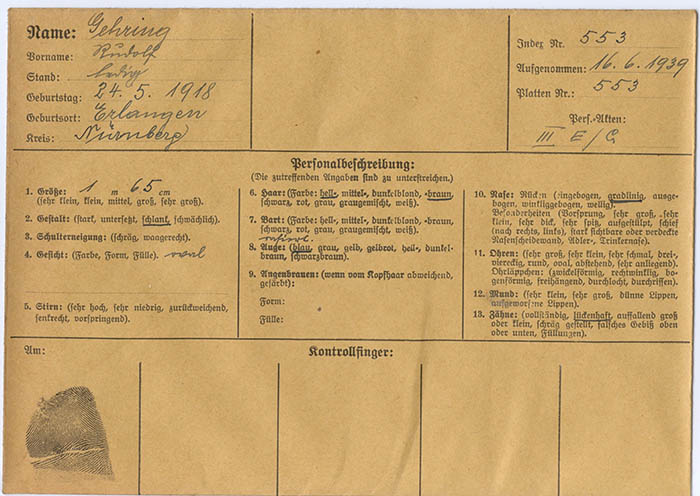 Name: Gehring
Vorname: Rudolf
Stand: ledig
Geburtstag: 24. 5. 1918
Geburtsort: Erlangen
Kreis: Nürnberg
Index Nr. 553
Aufgenommen: 16. 6. 1939
Platten Nr.: 553
Pers.-Akten:
III E/G
Personalbeschreibung:
(Die zutreffenden Angaben sind zu unterstreichen.)
1. Größe: 1 m 65 cm
(sehr klein, klein, mittel, groß, sehr groß).
2. Gestalt: (stark, untersetzt, schlank, schwächlich).
3. Schulterneigung: (schräg, waagerecht).
4. Gesicht: (Farbe, Form, Fülle). oval
5. Stirn: (sehr hoch, sehr niedrig, zurückweichend,
senkrecht, vorspringend).
6. Haar: (Farbe: hell-, mittel-, dunkelblond, -braun,
schwarz, rot, grau, graugemischt, weiß).
7. Bart: (Farbe: hell-, mittel-, dunkelblond, -braun,
schwarz, rot, grau, graugemischt, weiß).
rasiert.
8. Auge: (blau, grau, gelb, gelbrot, hell-, dunkel-
braun, schwarzbraun).
9. Augenbrauen: (wenn vom Kopfhaar abweichend,
gefärbt):
Form:
Fülle:
10. Nase: Rücken (eingebogen, gradlinig, ausge-
bogen, winkliggebogen, wellig).
Besonderheiten (Vorsprung, sehr groß, sehr
klein, sehr dick, sehr spitz, aufgestülpt, schief
(nach rechts, links), stark sichtbare oder verdeckte
Nasenscheidewand, Adler-, Trinkernase).
11. Ohren: (sehr groß, sehr klein, sehr schmal, drei-,
viereckig, rund, oval, abstehend, sehr anliegend).
Ohrläppchen: (zwickelförmig, rechtwinklig, bo-
genförmig, freihängend, durchlocht, durchrissen).
12. Mund: (sehr klein, sehr groß, dünne Lippen,
aufgeworfene Lippen).
13. Zähne: (vollständig, lückenhaft, auffallend groß
oder klein, schräg gestellt, falsches Gebiß oben
oder unten, Füllungen).
Am:
Kontrollfinger: